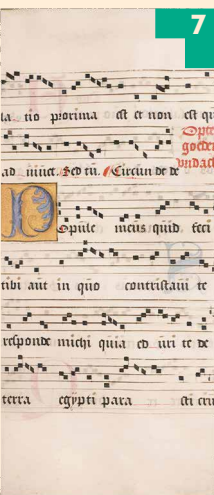 7
la tio proxima est et non est qu
Opte
goede
ad iuuet. Sed tu. Circum de de
vridach
Popule meus quid feci
tibi aut in quo contristaui te
responde michi quia ed uxi te de
terra egypti para sti cru